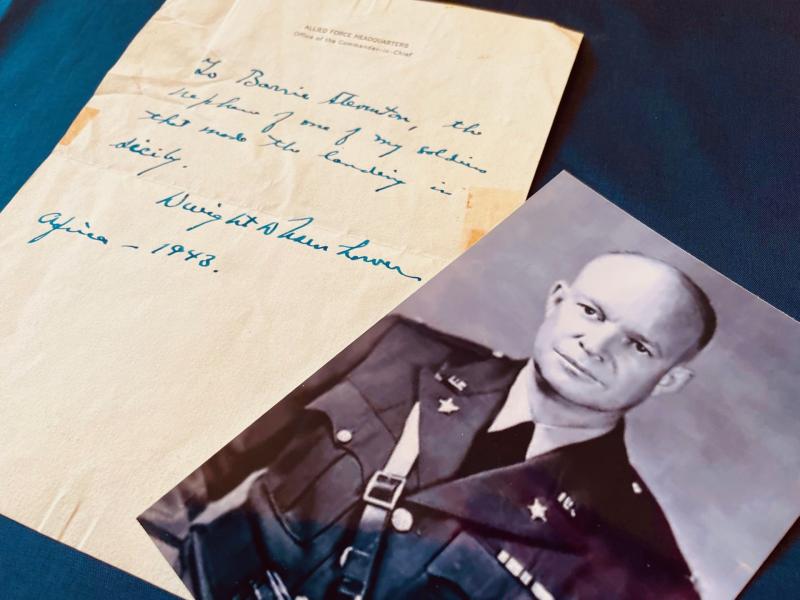 ALLIED FORCE HEADQUARTERS
Office of the Commander-in-Chief
To Barrie, the
nephew of one of my soldiers
that made the landing in
Sicily.
Dwight D Eisenhower
Africa – 1943.
U.S.
U.S.